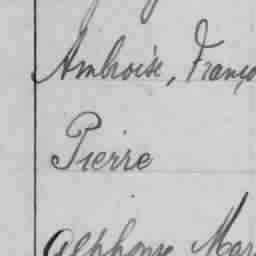 Ambroise, Franço
Pierre
Alphonse Mar